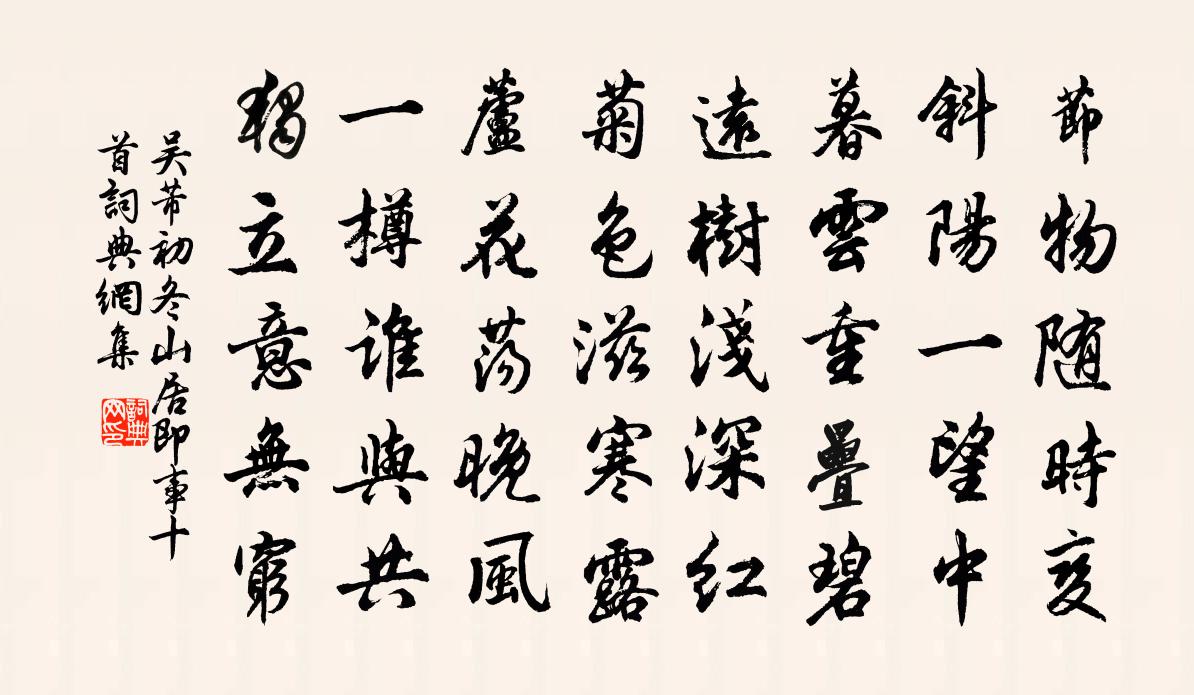 節物隨時變
斜陽一望中
暮雲重疊碧
遠樹淺深紅
菊色滋寒露
蘆花蕩晚風
一樽誰與共
獨立意無窮
吴芾初冬山居即事十
首詞典網集
詞典網印